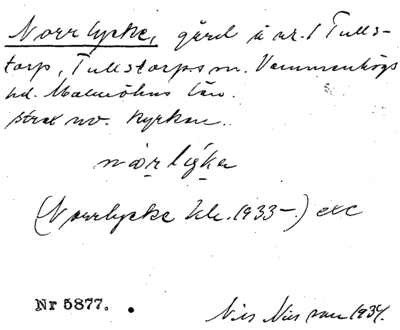 Norrlycke, gård å nr. 1 Tulls-
torp, Tullstorps sn. Vemmenhögs
hd. Malmöhus län.
strax nv. kyrkan.
nȧrligka
(Norrlycke kk. 1933-) etc
Nr 5877. Nils Nilsson 1934.